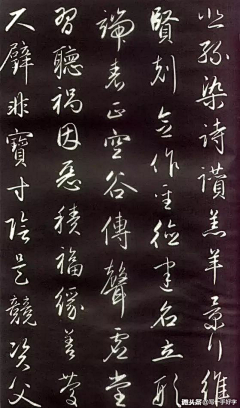 丝染詩讚羔羊景行維
賢剋念作聖德建名立形
端表正空谷傳聲虛堂
習聽禍因惡積福緣善慶
尺璧非寶寸陰是競資父